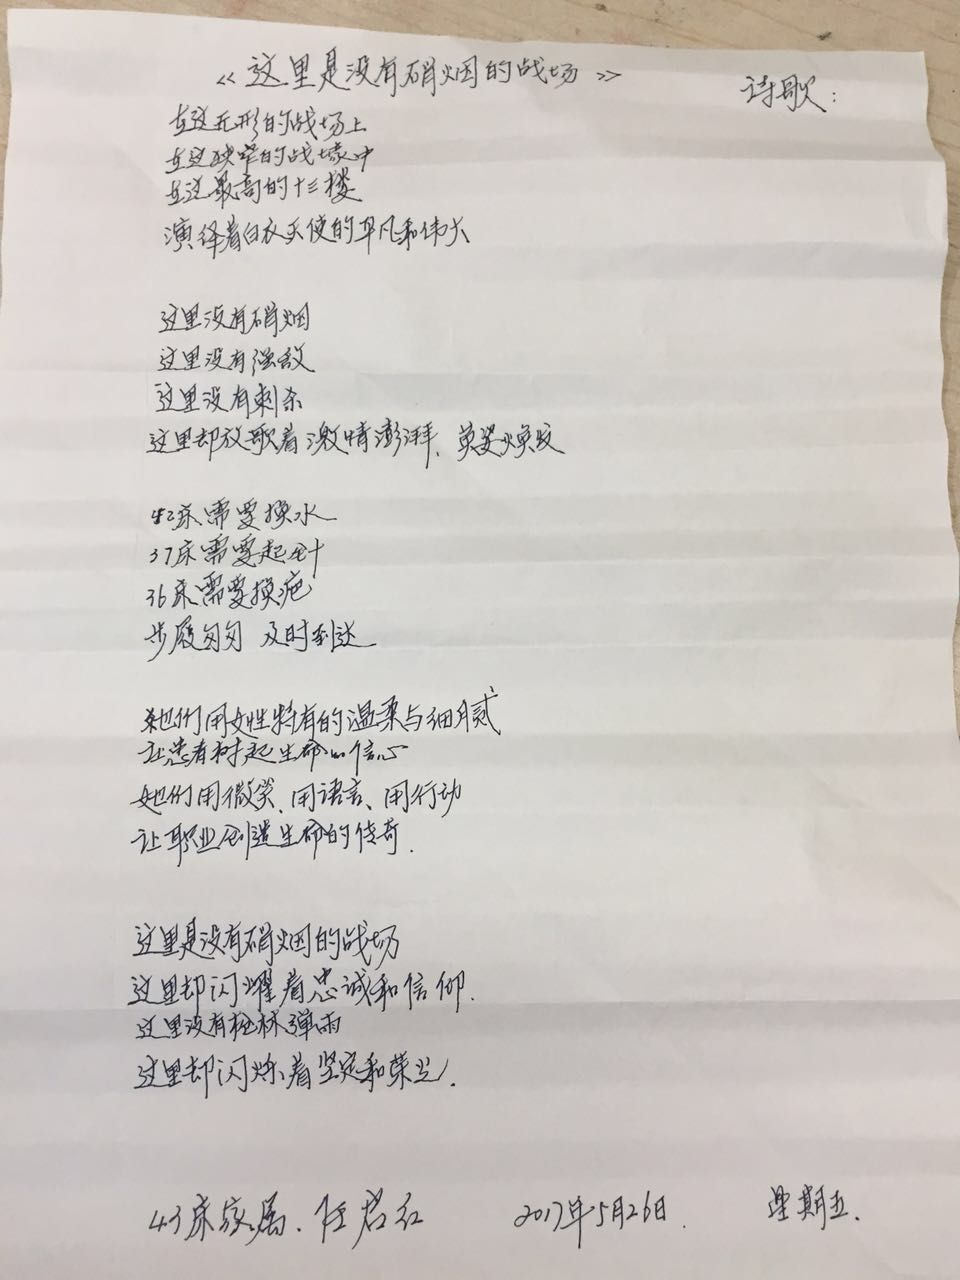 《这里是没有硝烟的战场》
诗歌:
在这无形的战场上
在这狭窄的战壕中
在这最高的十三楼
演绎着白衣天使的平凡和伟大
这里没有硝烟
这里没有强敌
这里没有刺杀
这里却放歌着激情澎湃、英姿焕发
42床需要换水
37床需要起针
36床需要换疤
步履匆匆 及时到达
她们用女性特有的温柔与细腻
让患者树起生命的信心
她们用微笑、用语言、用行动
让职业创造生命的传奇.
这里是没有硝烟的战场
这里却闪耀着忠诚和信仰.
这里没有枪林弹雨
这里却闪烁着坚定和荣光.
43床家属.任君红
2017年5月26日.
星期五.